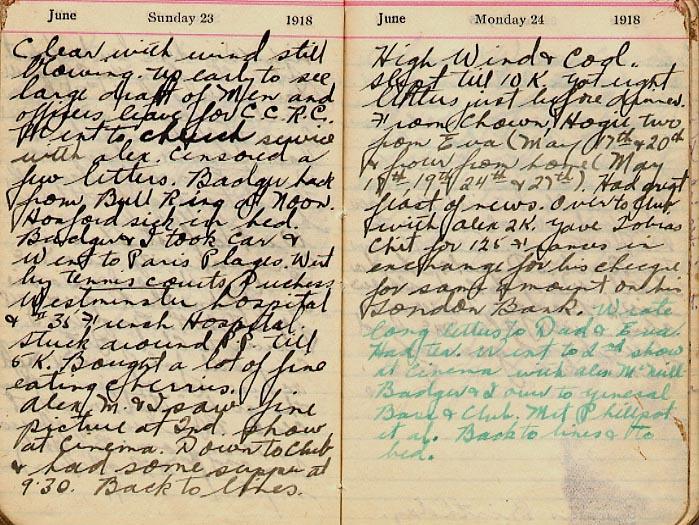 June Sunday 23 1918
Clear with wind still
blowing. Up early to see
large draft of Men and
officers leave for C.C.R.C.
Went to church service
with alex. Censored a
few letters. Badger back
from Bull Ring at Noon.
Horsford sick in bed.
Badger & I took car &
Went to Paris Plages. Went
by tennis courts Duchess
Westminster hospital
& #35 French Hospital.
Stuck around P.P. till
5 K. Bought a lot of fine
eating cherries.
Alex M. & I saw fine
picture at 2nd show
at Cinema. Down to Club
& had some supper at
9.30. Back to lines.
June Monday 24 1918
High Wind & Cool.
Slept till 10 K. Got eight
letters just before dinner.
From Chown, Hogie two
from Eva (May 17th & 20th
& four from home (May
18th, 19th, 24th & 27th). Had great
feast of news. Over to club
with Alex 2K. Gave Tobias
Chit for 125 francs in
exchange for his cheque
for same amount on his
London Bank. Wrote
long letters to Dad & Eva.
Had tea. Went to 2nd show
at Cinema with alex McNeill
Badger & I over to general
Base & Club. Met Phillpot
et al. Back to lines & to
bed.